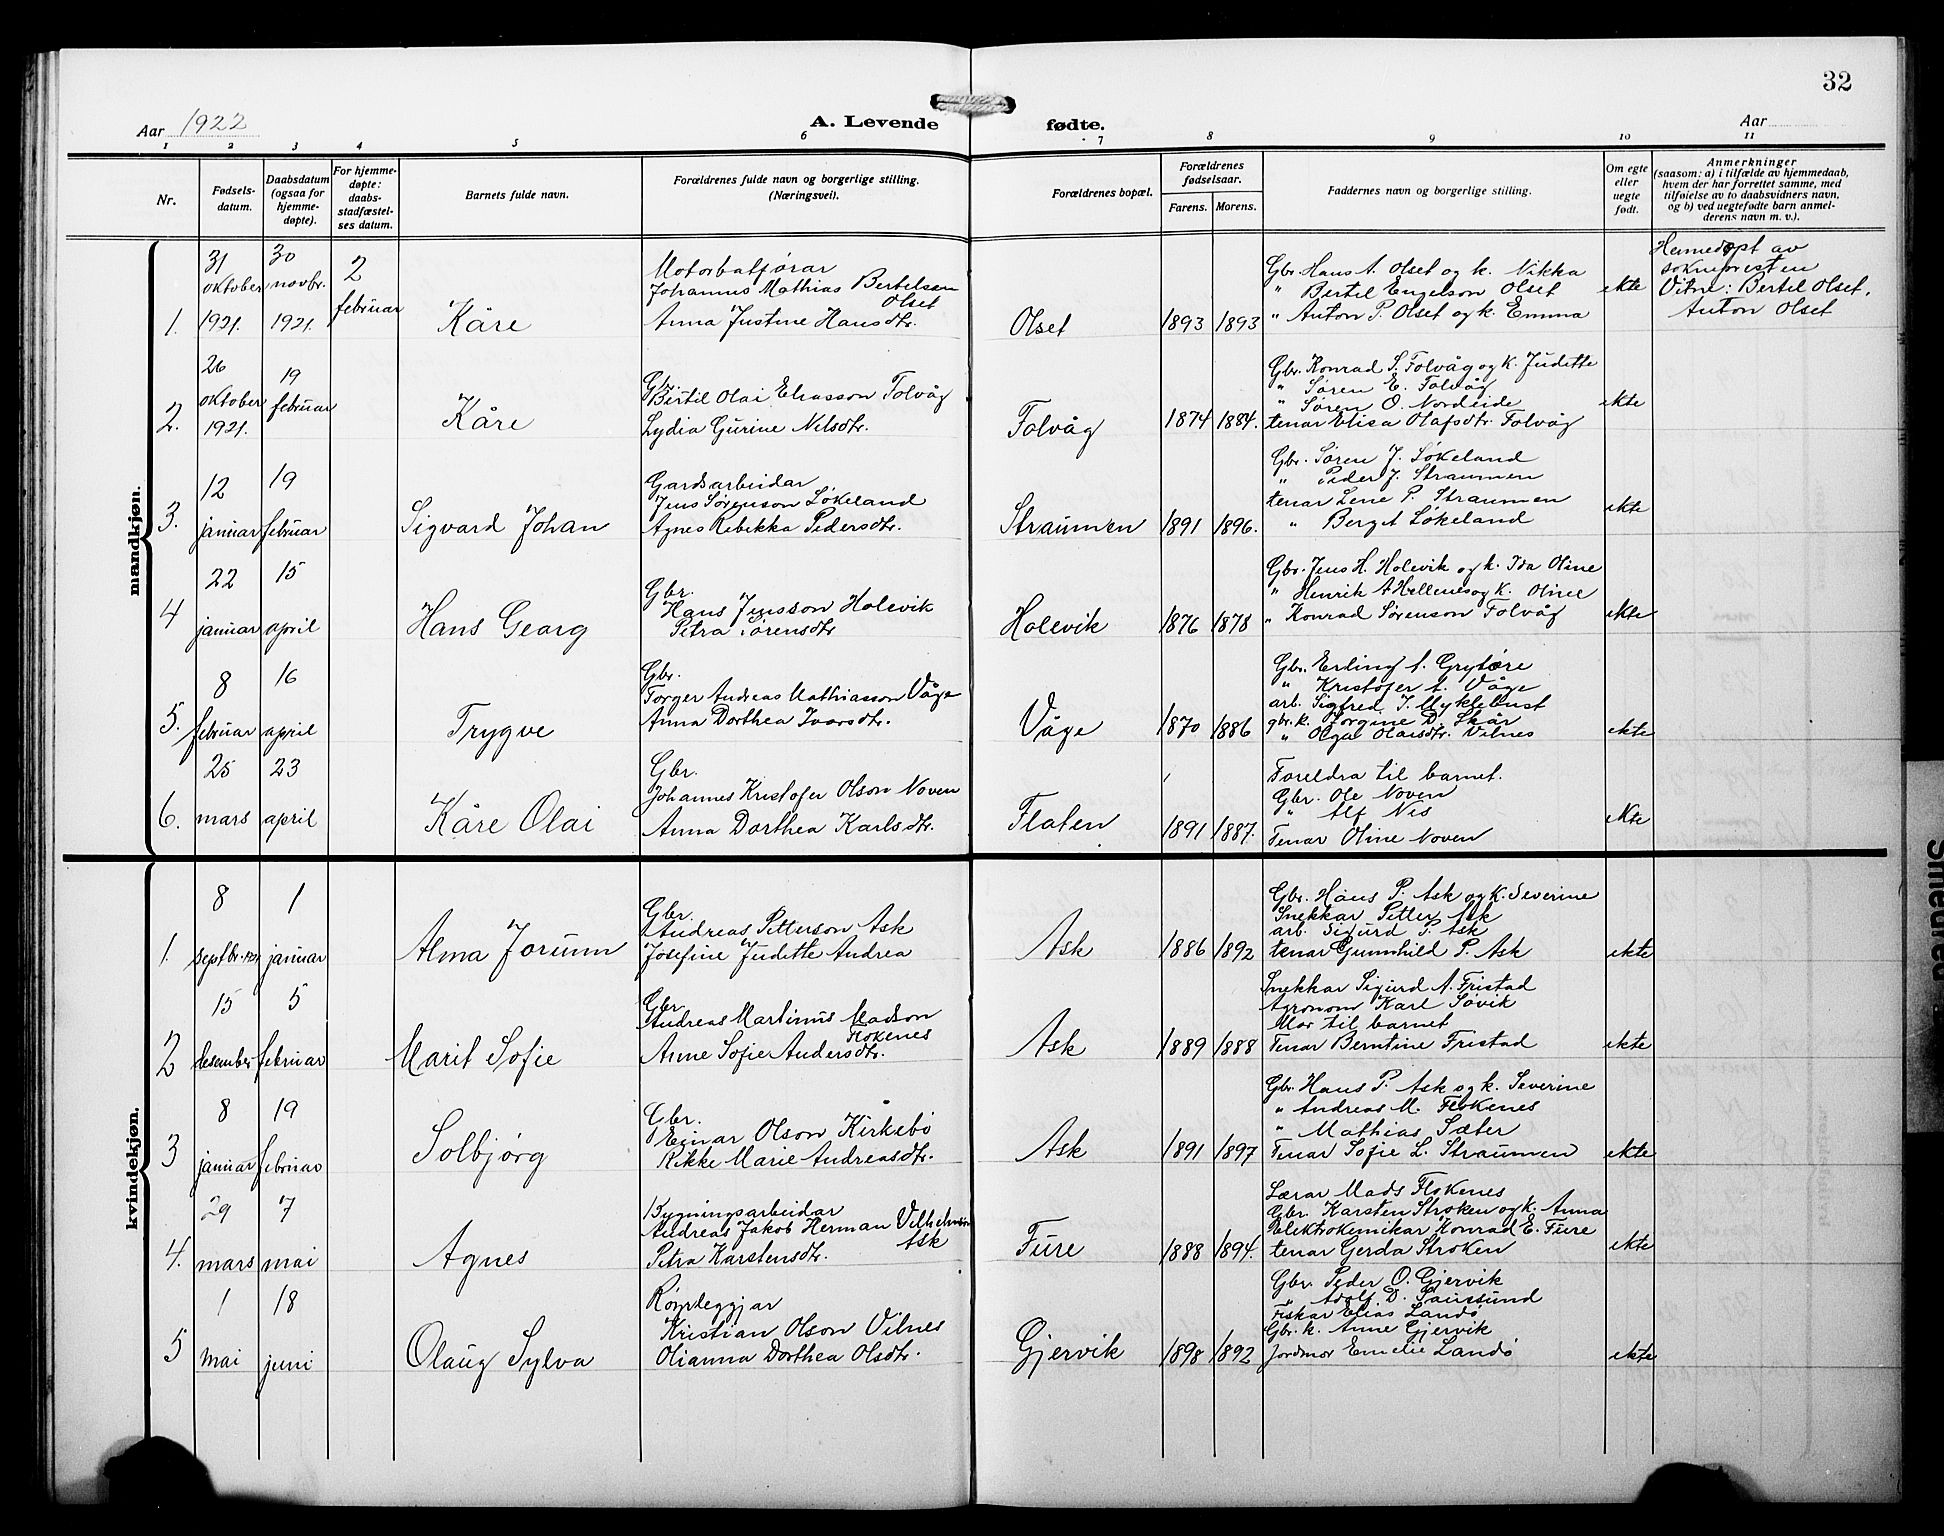 32
Aar 1922
A. Levende fødte.
Aar
1 2 3 4 5 6 7 8 9 10 11
Nr.
Fødsels-
datum.
Daabsdatum
(ogsaa for
hjemme-
døpte).
For hjemme-
døpte:
daabs-
stadfæstel-
ses datum.
Barnets fulde navn.
Forældrenes fulde navn og borgerlige stilling.
(Næringsvei).
Forældrenes bopæl.
Forældrenes
fødselsaar.
Farens. Morens.
Faddernes navn og borgerlige stilling.
Om egte
eller
uegte
født.
Anmerkninger
(saasom: a) i tilfælde av hjemmedaab,
hvem der har forrettet samme, med
tilføielse av to daabsvidners navn,
og b) ved uegtefødte barn anmel-
derens navn m. v.).
mandkjøn.
1.
31
oktober
1921.
30
novbr.
1921.
2
februar
Kåre
Motorbatførar
Johannes Mathias Bertelsen
Olset
Anna Justine Hansdtr.
Olset
1893 1893
Gbr. Hans A. Olset og k. Rikka
" Bertel Engelson Olset
" Anton P. Olset og k. Emma
ekte
Heimedøpt av
soknepresten
Vitne: Bertil Olset,
Anton Olset
2.
26
oktober
1921.
19
februar
Kåre
Gbr.
Bertil Olai Eliasson Folvåg
Lydia Gurine Nilsdtr.
Folvåg
1874 1884.
Gbr. Konrad S. Folvåg og k. Judette
" Søren E. Folvåg
" Søren O. Nordeide
tenar Elisa Olafsdtr. Folvåg
ekte
3.
12
januar
19
februar
Sigvard Johan
Gardsarbeidar
Jens Sørenson Løkeland
Agnes Rebikka Pedersdtr.
Straumen
1891 1896.
Gbr. Søren J. Løkeland
" Peder J. Straumen
tenar Lene P. Straumen
" Berget Løkeland
ekte
4
22
januar
15
april
Hans Georg
Gbr.
Hans Jensson Holevik
Petra Sørensdtr
Holevik
1876 1878
Gbr. Jens H. Holevik og k. Ida Oline
" Henrik A Hellenes og k. Oline
" Konrad Sørenson Folvåg
ekte
5.
8
februar
16
april
Trygve
Gbr.
Torger Andreas Mathiasson Våge
Anna Dorthea Ivarsdtr.
Våge
1870 1886
Gbr. Erling A. Grytøre
" Kristofer A. Våge
arb. Sigfred J. Myklebust
gbr. k. Jorgine D. Skår
" Olga Olaisdtr. Vilnes
ekte
6.
25
mars
23
april
Kåre Olai
Gbr.
Johannes Kristofer Olson Noven
Anna Dorthea Karlsdtr.
Flaten
1891 1887.
Foreldra til barnet.
Gbr. Ole Noven
" Alf Nes
Tenar Oline Noven
ekte
kvindekjøn.
1.
8
septbr. 1921
1
januar
Alma Jorunn
Gbr.
Andreas Petterson Ask
Josefine Judette Andrea
Ask
1886 1892
Gbr. Hans P. Ask og k. Severine
Snekkar Petter Ask
arb. Sigurd P. Ask
tenar Gunnhild P. Ask
ekte
2
15
desember
5
februar
Marit Sofie
Gbr.
Andreas Martinus Madson
Flokenes
Anne Sofie Andersdtr.
Ask
1889 1888
Snekkar Sigurd A. Fristad
Agronom Karl Søvik
Mor til barnet
Tenar Berntine Fristad
ekte
3
8
januar
19
februar
Solbjørg
Gbr.
Einar Olson Kirkebø
Rikke Marie Andreasdtr.
Ask
1891 1897
Gbr. Hans P. Ask og k. Severine
" Andreas M. Flokenes
" Mathias Sæter
Tenar Sofie L. Straumen
ekte
4.
29
mars
7
mai
Agnes
Bygningsarbeidar
Andreas Jakob Herman Vilhelmson
Ask
Petra Karstensdtr.
Fure
1888 1894.
Lærar Mads Flokenes
Gbr. Karsten Stroken og k. Anna
Elektrokemikar Konrad E. Fure
tenar Gerda Stroken
ekte
5
1
mai
18
juni
Olaug Sylva
Rørleggjar
Kristian Olson Vilnes
Olianna Dorthea Olsdtr.
Gjervik
1898 1892
Gbr. Peder O. Gjervik
" Adolf D. Sauesund
Fiskar Elias Landø
Gbr. k. Anne Gjervik
Jordmor Emelie Landø
ekte